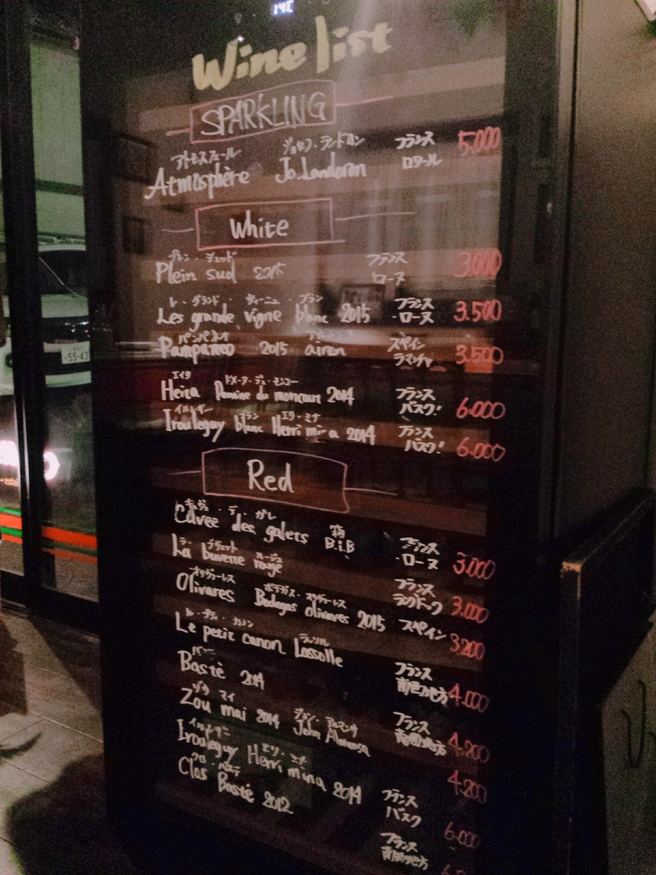 Wine list
SPARKLING
アトモスフェール ジョセフ・ランドロン フランス
Atmosphère Jo.Landoron ロワール 5.000
White
プレン・シュッド フランス
Plein sud 2015 ローヌ 3.000
レ・グランド ヴィーニュ・ブラン フランス
Les grande vigne blanc 2015 ・ローヌ 3.500
パンパネオ スペイン
Pampaneo 2015 airen ラマンチャ 3.500
エイタ ドメーヌ・デュ・モンコー フランス
Heita Domaine du moncaut 2014 バスク! 6.000
イルレギー ブラン エリ・ミナ フランス
Irouleguy blanc Herri mina 2014 バスク! 6.000
Red
キュヴェ・デ・ガレ 箱 フランス
Cuvee des galets B.i.B ・ローヌ 3.000
ラ・ブヴェット ルージュ フランス
La buvette rouge ラングドック 3.000
オリヴァーレス ボデガス・オリヴァーレス
Olivares Bodegas olivares 2015 スペイン 3.200
ル・プティ・カノン ラッソル フランス
Le petit canon Lassolle 南西地方 4.000
Basté 2014 フランス 南西地方 4.200
ゾウ マイ
Zou mai 2014 4.200
イルレギー エリ・ミナ フランス
Irouleguy Herri mina 2014 バスク 6.000
クロ・バステ フランス
Clos Basté 2012 南西地方
55-43